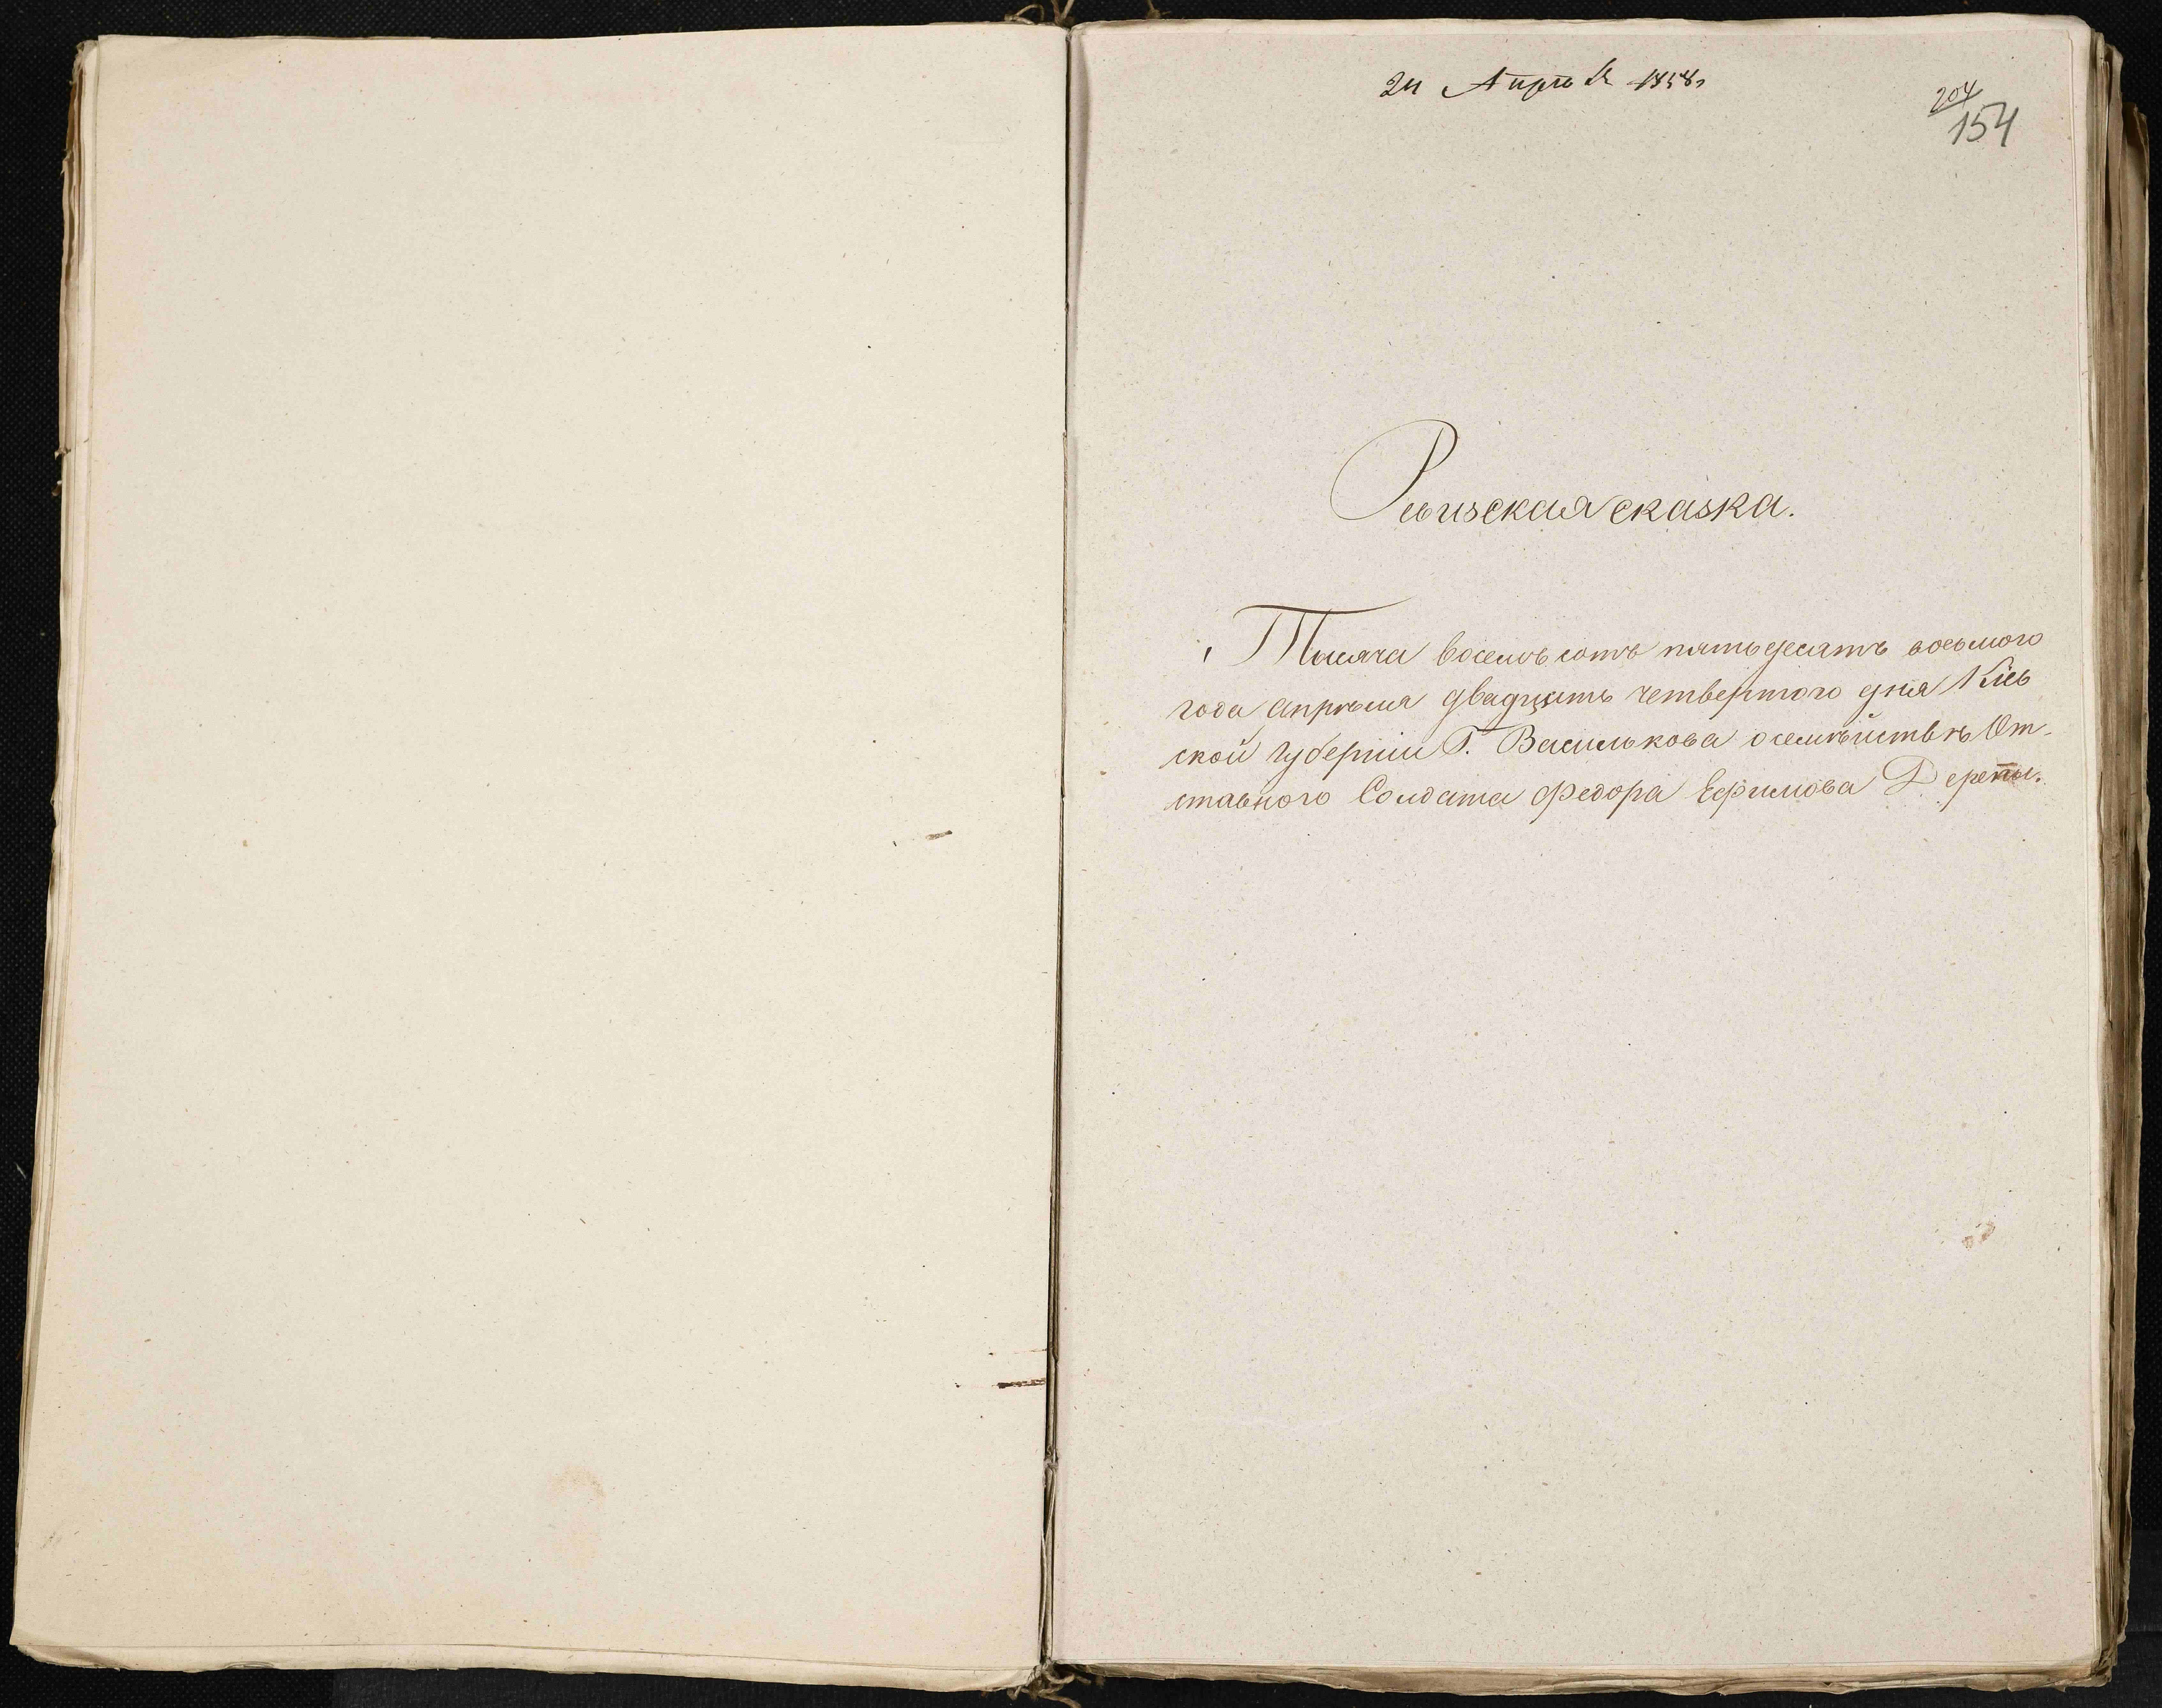 24 Апрѣля 1858
204
154
Ревизская сказка.
Тысяча восемьсотъ пятьдесятъ восьмого
года апрѣля двадцать четвертого дня Кіев
ской губерніи Г. Василькова о семѣйствѣ От-
ставного Солдата Федора Ефимова